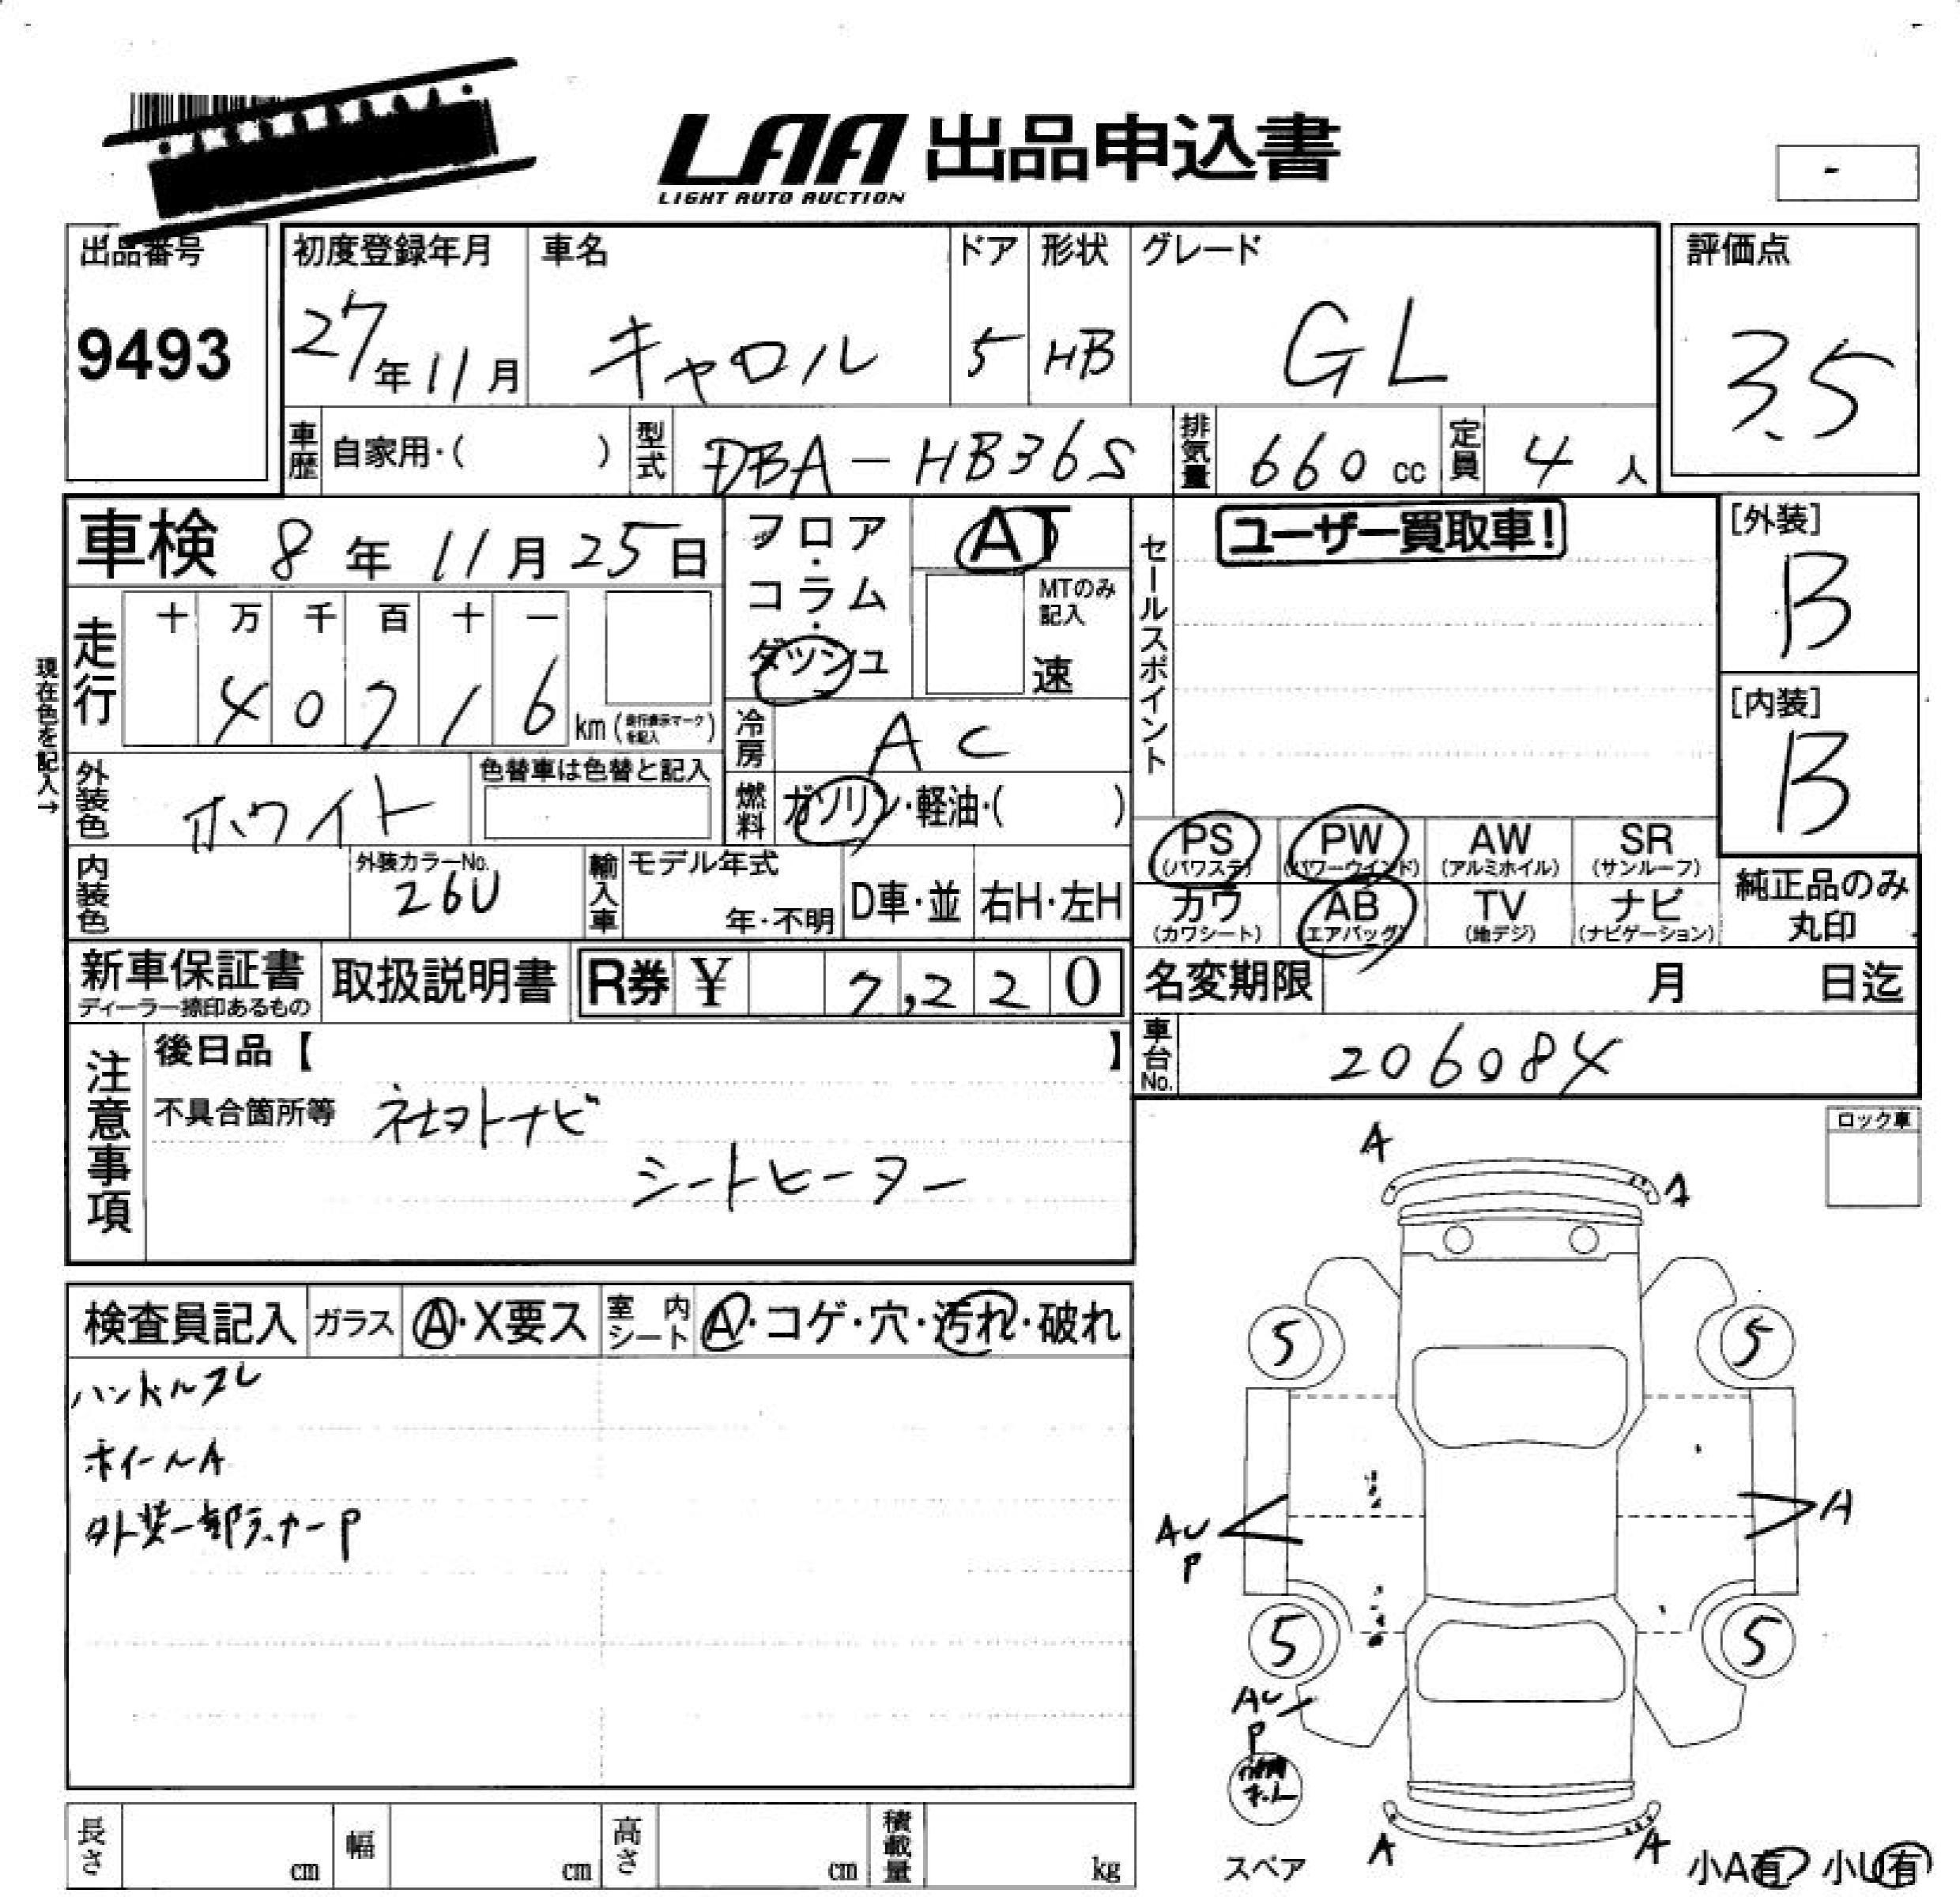 LAA 出品申込書
LIGHT AUTO AUCTION
-
出品番号
9493
初度登録年月
27年11月
車名
キャロル
ドア
5
形状
HB
グレード
GL
評価点
3.5
車歴 自家用・( )
型式 DBA-HB36S
排気量 660 cc
定員 4 人
車検 8年11月25日
フロア・コラム・ダッシュ
AT
MTのみ記入
速
セールスポイント
ユーザー買取車!
[外装]
B
[内装]
B
現在色を記入→
走行
十 万 千 百 十 一
4 0 7 1 6 km (走行表示マークを記入)
冷房 AC
外装色 ホワイト
色替車は色替と記入
燃料 ガソリン・軽油・( )
PS (パワステ)
PW (パワーウインド)
AW (アルミホイル)
SR (サンルーフ)
カワ (カワシート)
AB (エアバッグ)
TV (地デジ)
ナビ (ナビゲーション)
純正品のみ丸印
内装色
外装カラーNo.
26U
輸入車
モデル年式
年・不明
D車・並
右H・左H
新車保証書
ディーラー捺印あるもの
取扱説明書
R券 ¥ 7,220
名変期限 月 日迄
車台No. 206084
注意事項
後日品【 】
不具合箇所等 ネセヌトナビ
シートヒーター
ロック車
A
A
検査員記入
ガラス A・X要ス
室内シート A・コゲ・穴・汚れ・破れ
ハンドルスレ
ホイールA
外装一部ライナーP
5
5
AU
P
A
5
5
AU
P
スペア
A
A
小A有 小U有
長さ cm
幅 cm
高さ cm
積載量 kg